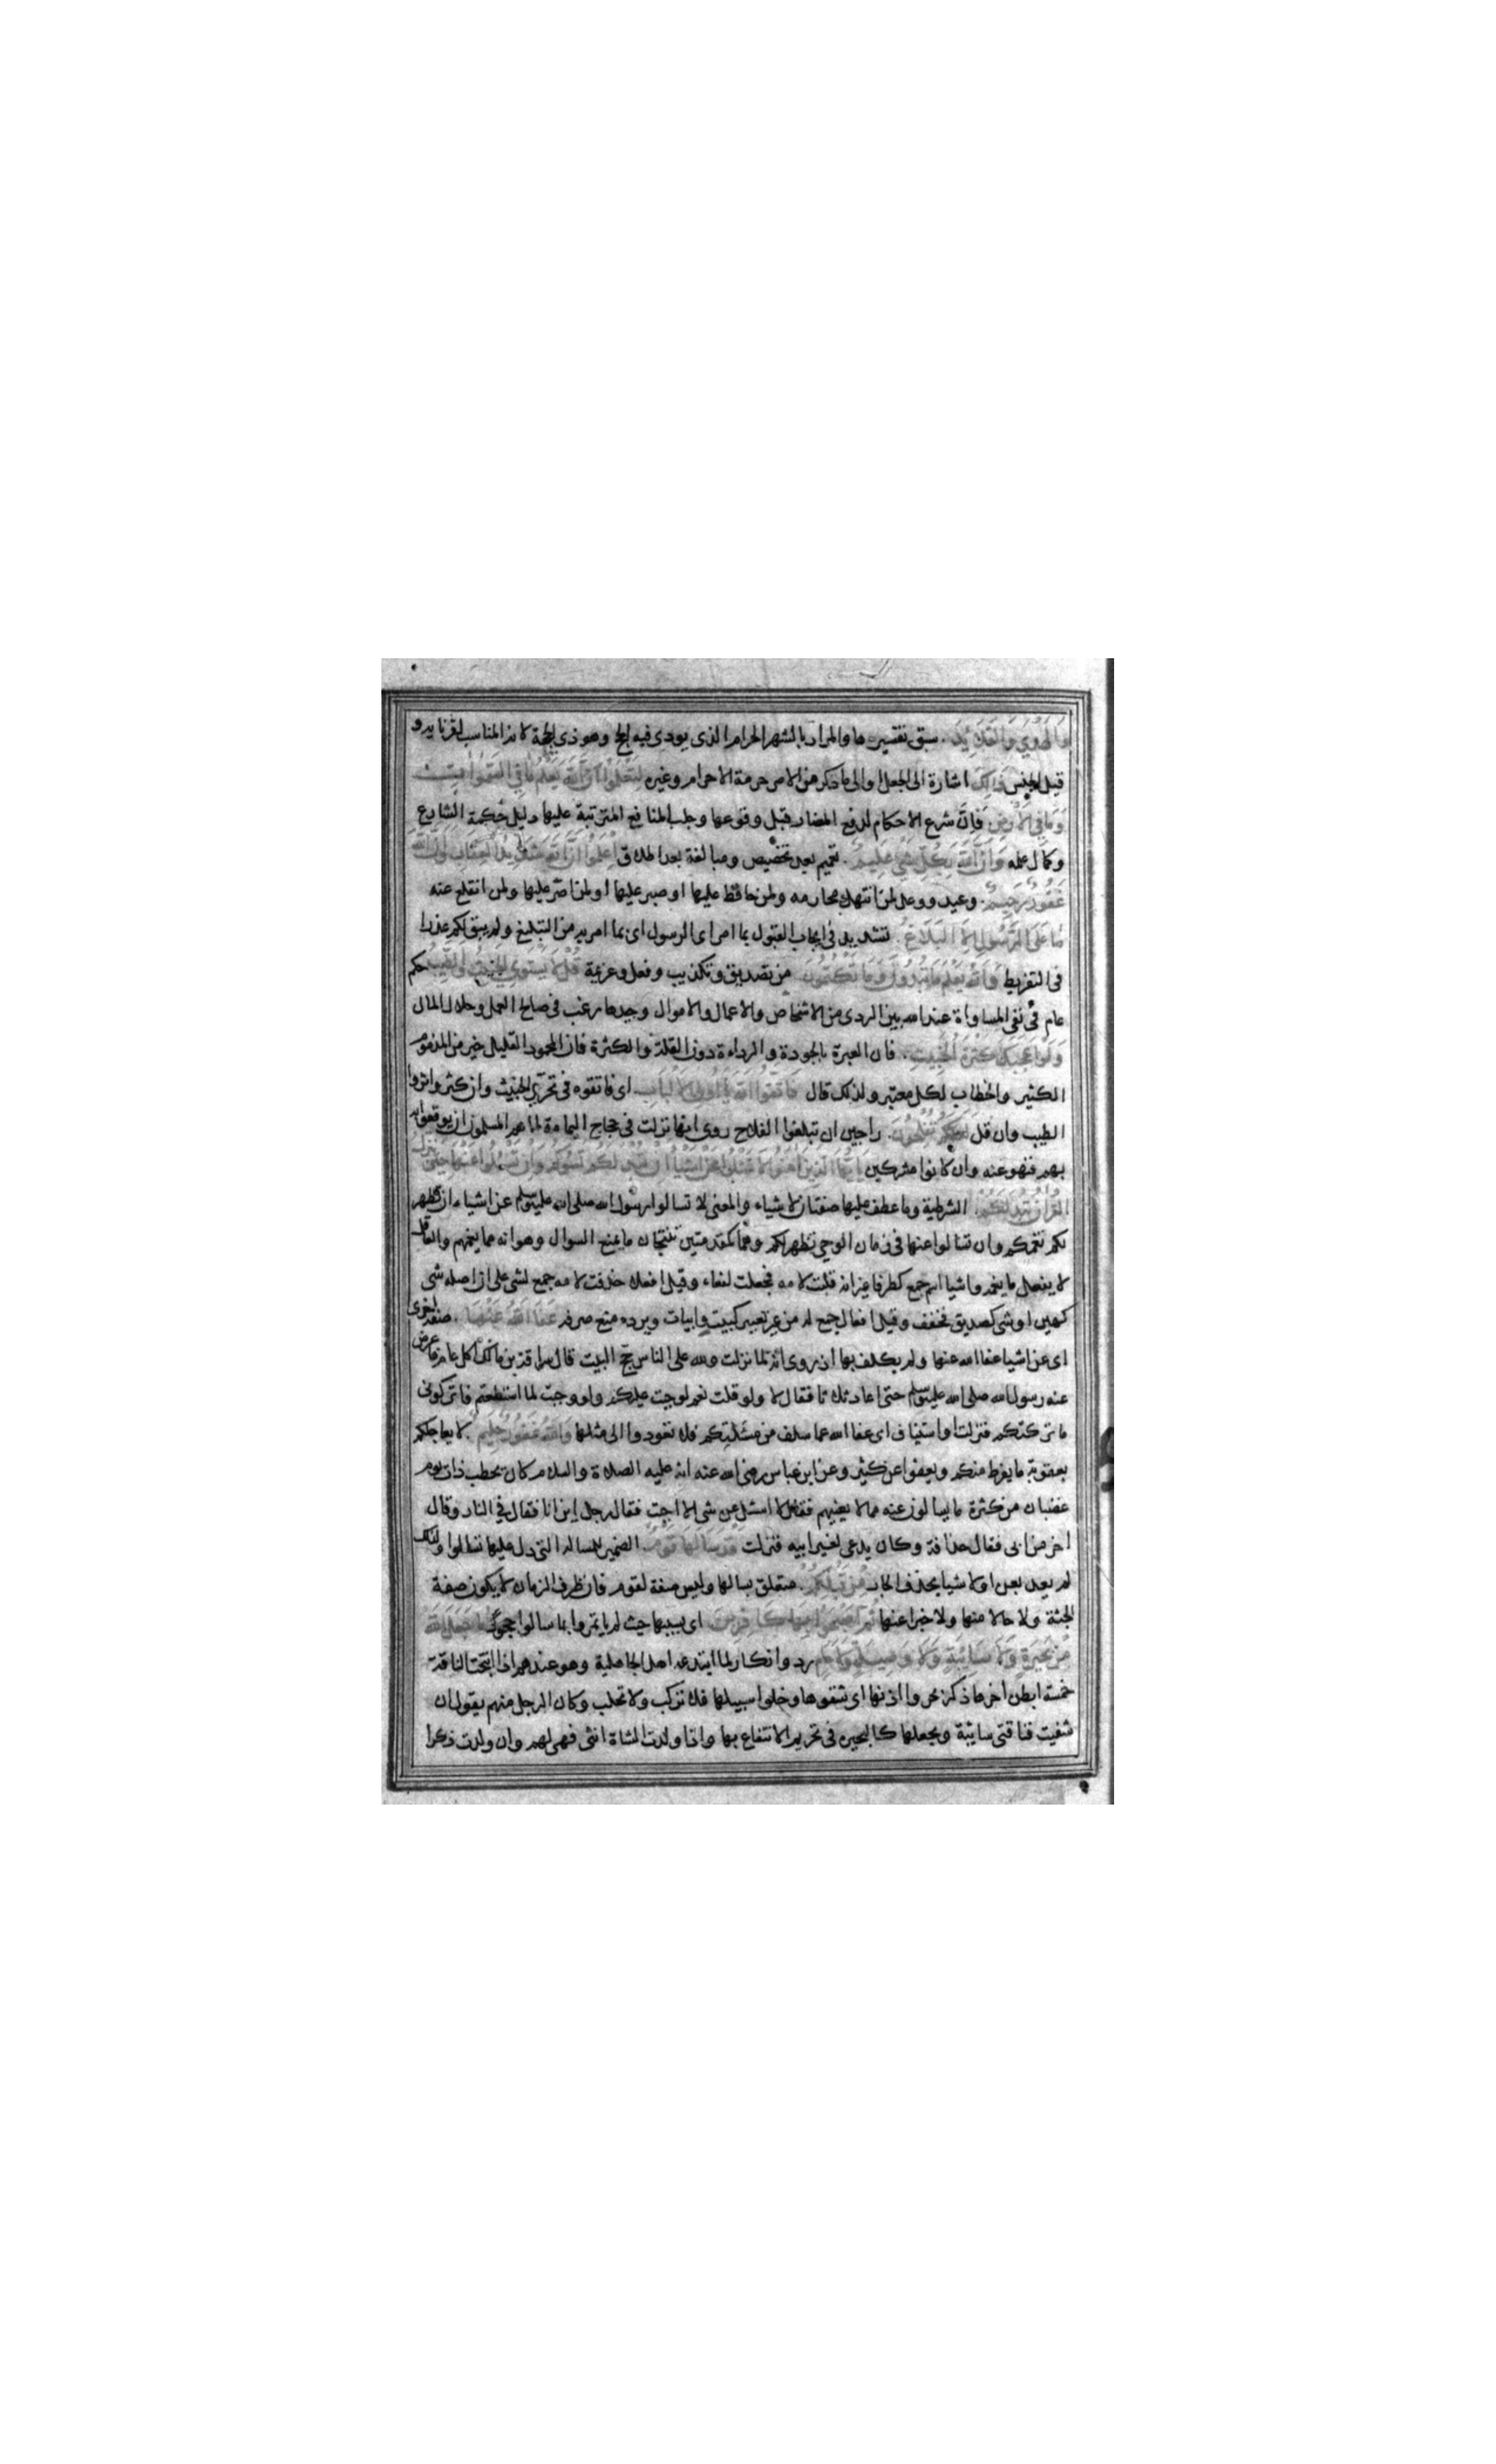 وَالْهَدْيَ وَالْقَلَائِدَ. سبق تفسيرها والمراد بالشهر الحرام الذى يودى فيه الحج وهو ذى الحجة لانه المناسب لقرنايه و
قيل الجنس ذَلِكَ اشارة الى الجعل او الى ما ذكر من الامر حرمة الاحرام وغيره لِتَعْلَمُوا أَنَّ اللَّهَ يَعْلَمُ مَا فِي السَّمَوَاتِ
وَمَا فِي الْأَرْضِ فانّ شرع الاحكام لدفع المضار قبل وقوعها وجلب المنافع المترتبة عليها دليل حكمة الشارع
وكمال علمه وَأَنَّ اللَّهَ بِكُلِّ شَيْءٍ عَلِيمٌ. تعميم بعد تخصيص ومبالغة بعد اطلاق اعْلَمُوا أَنَّ اللَّهَ شَدِيدُ الْعِقَابِ وَأَنَّ اللَّهَ
غَفُورٌ رَحِيمٌ. وعيد ووعد لمن انتهك محارمه ولمن حافظ عليها او صبر عليها او لمن اصرّ عليها ولمن انقلع عنه
مَا عَلَى الرَّسُولِ إِلَّا الْبَلَاغُ. تشديد فى ايجاب القبول بما امر اى الرسول اى بما امر به من التبليغ ولم يبق لكم عذرا
فى التفريط وَاللَّهُ يَعْلَمُ مَا تُبْدُونَ وَمَا تَكْتُمُونَ من تصديق وتكذيب وفعل وعزيمة قُلْ لَا يَسْتَوِي الْخَبِيثُ وَالطَّيِّبُ حكم
عام فى نفى المساواة عند الله بين الردى من الاشخاص والاعمال والاموال وجيدها رغب فى صالح العمل وحلال المال
وَلَوْ أَعْجَبَكَ كَثْرَةُ الْخَبِيثِ. فان العبرة بالجودة والرداءة دون القلة والكثرة فان المحمود القليل خير من المذموم
الكثير والخطاب لكل معتبر ولذلك قال فَاتَّقُوا اللَّهَ يَا أُولِي الْأَلْبَابِ. اى فاتقوه فى تحرّى الخبيث وان كثر واثروا
الطيب وان قل لَعَلَّكُمْ تُفْلِحُونَ. راجين ان تبلغوا الفلاح روى انها نزلت فى حجاج اليمامة لما هم المسلمون ان يوقعوا
بهم فنهو عنه وان كانوا مشركين يَا أَيُّهَا الَّذِينَ آمَنُوا لَا تَسْأَلُوا عَنْ أَشْيَاءَ إِنْ تُبْدَ لَكُمْ تَسُؤْكُمْ وَإِنْ تَسْأَلُوا عَنْهَا حِينَ يُنَزَّلُ
الْقُرْآنُ تُبْدَ لَكُمْ. الشرطية وما عطف عليها صفتان لاشياء والمعنى لا تسالوا رسول الله صلى الله عليه وسلم عن اشياء ان تظهر
لكم تغمكم وان تسالوا عنها فى زمان الوحى تظهر لكم وهما كمقدمتين تنتجان ما يمنع السوال وهو انه مما يغمهم والعاقل
لا يفعل ما يغمه واشيا اسم جمع كطرفا غير انه قلبت لامه فجعلت لفعاء وقيل افعلا حذفت لامه جمع لشى على ان اصله شى
كهين او شى كصديق فخفف وقيل افعال جمع له من غير تغيير كبيت وابيات ويرده منع صرفه عَفَا اللَّهُ عَنْهَا. صفة اخرى
اى عن اشيا عفا الله عنها ولم يكلف بها اذ روى انه لما نزلت ولله على الناس حج البيت قال سراقة بن مالك اكل عام فاعرض
عنه رسول الله صلى الله عليه وسلم حتى اعاد ثلثا فقال لا ولو قلت نعم لوجبت عليكم ولو وجبت لما استطعتم فاتركونى
ما تركتكم فنزلت او استيناف اى عفا الله عما سلف من مسئلتكم فلا تعودوا الى مثلها وَاللَّهُ غَفُورٌ حَلِيمٌ. لا يعاجلكم
بعقوبة ما يفرط منكم ويعفوا عن كثير وعن ابن عباس رضى الله عنه انه عليه الصلاة والسلام كان يخطب ذات يوم
غضبان من كثرة ما يسالون عنه مما لا يعنيهم فقال لا اسئل عن شى الا اجبت فقال رجل اين انا فقال فى النار وقال
اخر من ابى فقال حذافة وكان يدعى لغير ابيه فنزلت قَدْ سَأَلَهَا قَوْمٌ. الضمير للمسالة التى دل عليها تسالوا ولذلك
لم يعد بعن او لاشيا بحذف الجار مِنْ قَبْلِكُمْ. متعلق بسالها وليس صفة لقوم فان ظرف الزمان لا يكون صفة
الجثة ولا حالا منها ولا خبرا عنها ثُمَّ أَصْبَحُوا بِهَا كَافِرِينَ اى بسببها حيث لم ياتمروا بما سالوا جحودا مَا جَعَلَ اللَّهُ
مِنْ بَحِيرَةٍ وَلَا سَائِبَةٍ وَلَا وَصِيلَةٍ وَلَا حَامٍ رد وانكار لما ابتدعه اهل الجاهلية وهو عندهم اذا انتجت الناقة
خمسة ابطن اخرها ذكر بحروا اذنها اى شقوها وخلوا سبيلها فلا تركب ولا تحلب وكان الرجل منهم يقول ان
شفيت فناقتى سائبة ويجعلها كالبحيره فى تحريم الانتفاع بها واذا ولدت الشاة انثى فهى لهم وان ولدت ذكرا